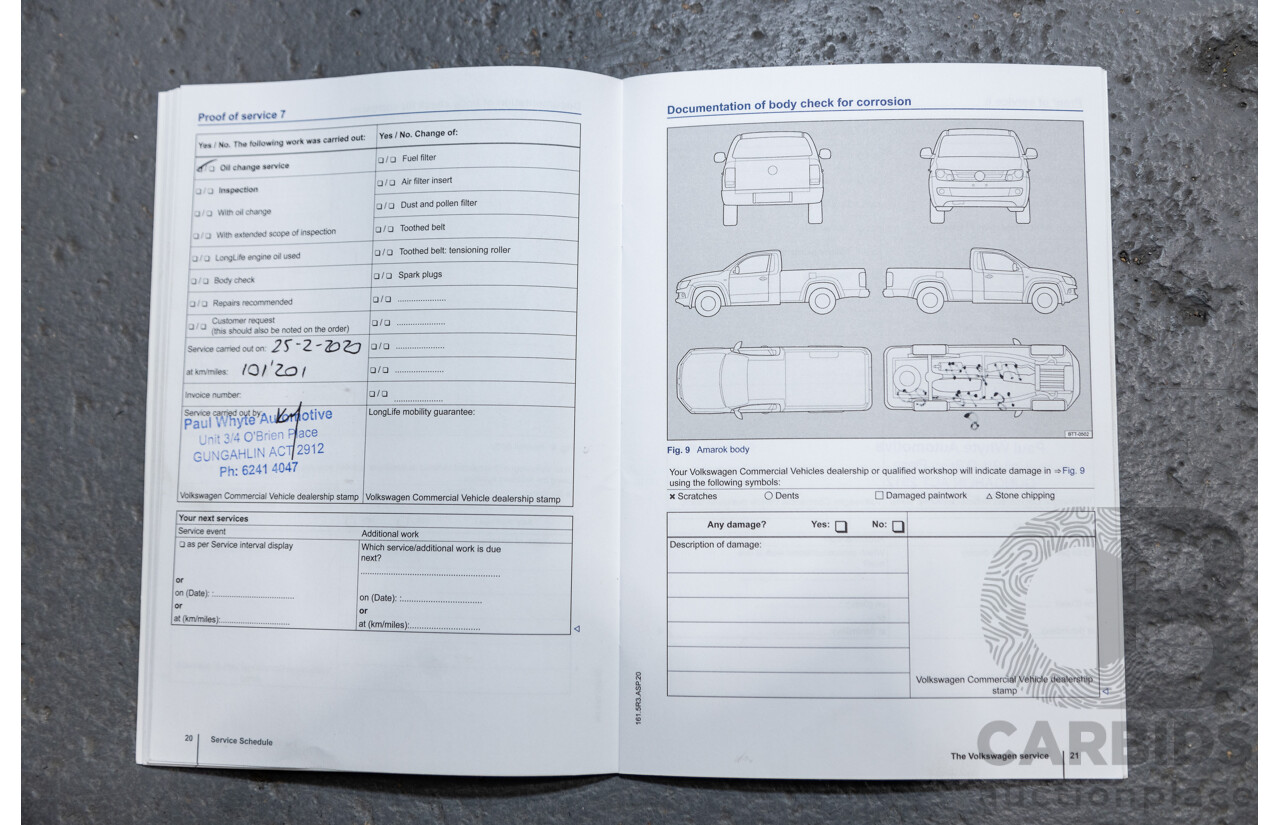 Proof of service 7
Yes / No. The following work was carried out:
Yes / No. Change of:
❏ / ❏ Oil change service
❏ / ❏ Fuel filter
❏ / ❏ Inspection
❏ / ❏ Air filter insert
❏ / ❏ With oil change
❏ / ❏ Dust and pollen filter
❏ / ❏ With extended scope of inspection
❏ / ❏ Toothed belt
❏ / ❏ LongLife engine oil used
❏ / ❏ Toothed belt: tensioning roller
❏ / ❏ Body check
❏ / ❏ Spark plugs
❏ / ❏ Repairs recommended
❏ / ❏ ....................
❏ / ❏ Customer request
(this should also be noted on the order)
❏ / ❏ ....................
Service carried out on: 25-2-2020
❏ / ❏ ....................
at km/miles: 101'201
❏ / ❏ ....................
Invoice number:
❏ / ❏ ....................
Service carried out by:
Paul Whyte Automotive
Unit 3/4 O'Brien Place
GUNGAHLIN ACT 2912
Ph: 6241 4047
Volkswagen Commercial Vehicle dealership stamp
LongLife mobility guarantee:
Volkswagen Commercial Vehicle dealership stamp
Your next services
Service event
Additional work
❏ as per Service interval display
or
on (Date): :..............................
or
at (km/miles):..........................
Which service/additional work is due
next?
....................................................
on (Date): :..............................
or
at (km/miles):..........................
20 Service Schedule
Documentation of body check for corrosion
B7T-0602
Fig. 9 Amarok body
Your Volkswagen Commercial Vehicles dealership or qualified workshop will indicate damage in ⇒ Fig. 9
using the following symbols:
✖ Scratches ○ Dents □ Damaged paintwork △ Stone chipping
Any damage? Yes: ❏ No: ❏
Description of damage:
Volkswagen Commercial Vehicle dealership
stamp
161.5R3.ASP.20
The Volkswagen service 21
CB
CARBIDS
auctionplace